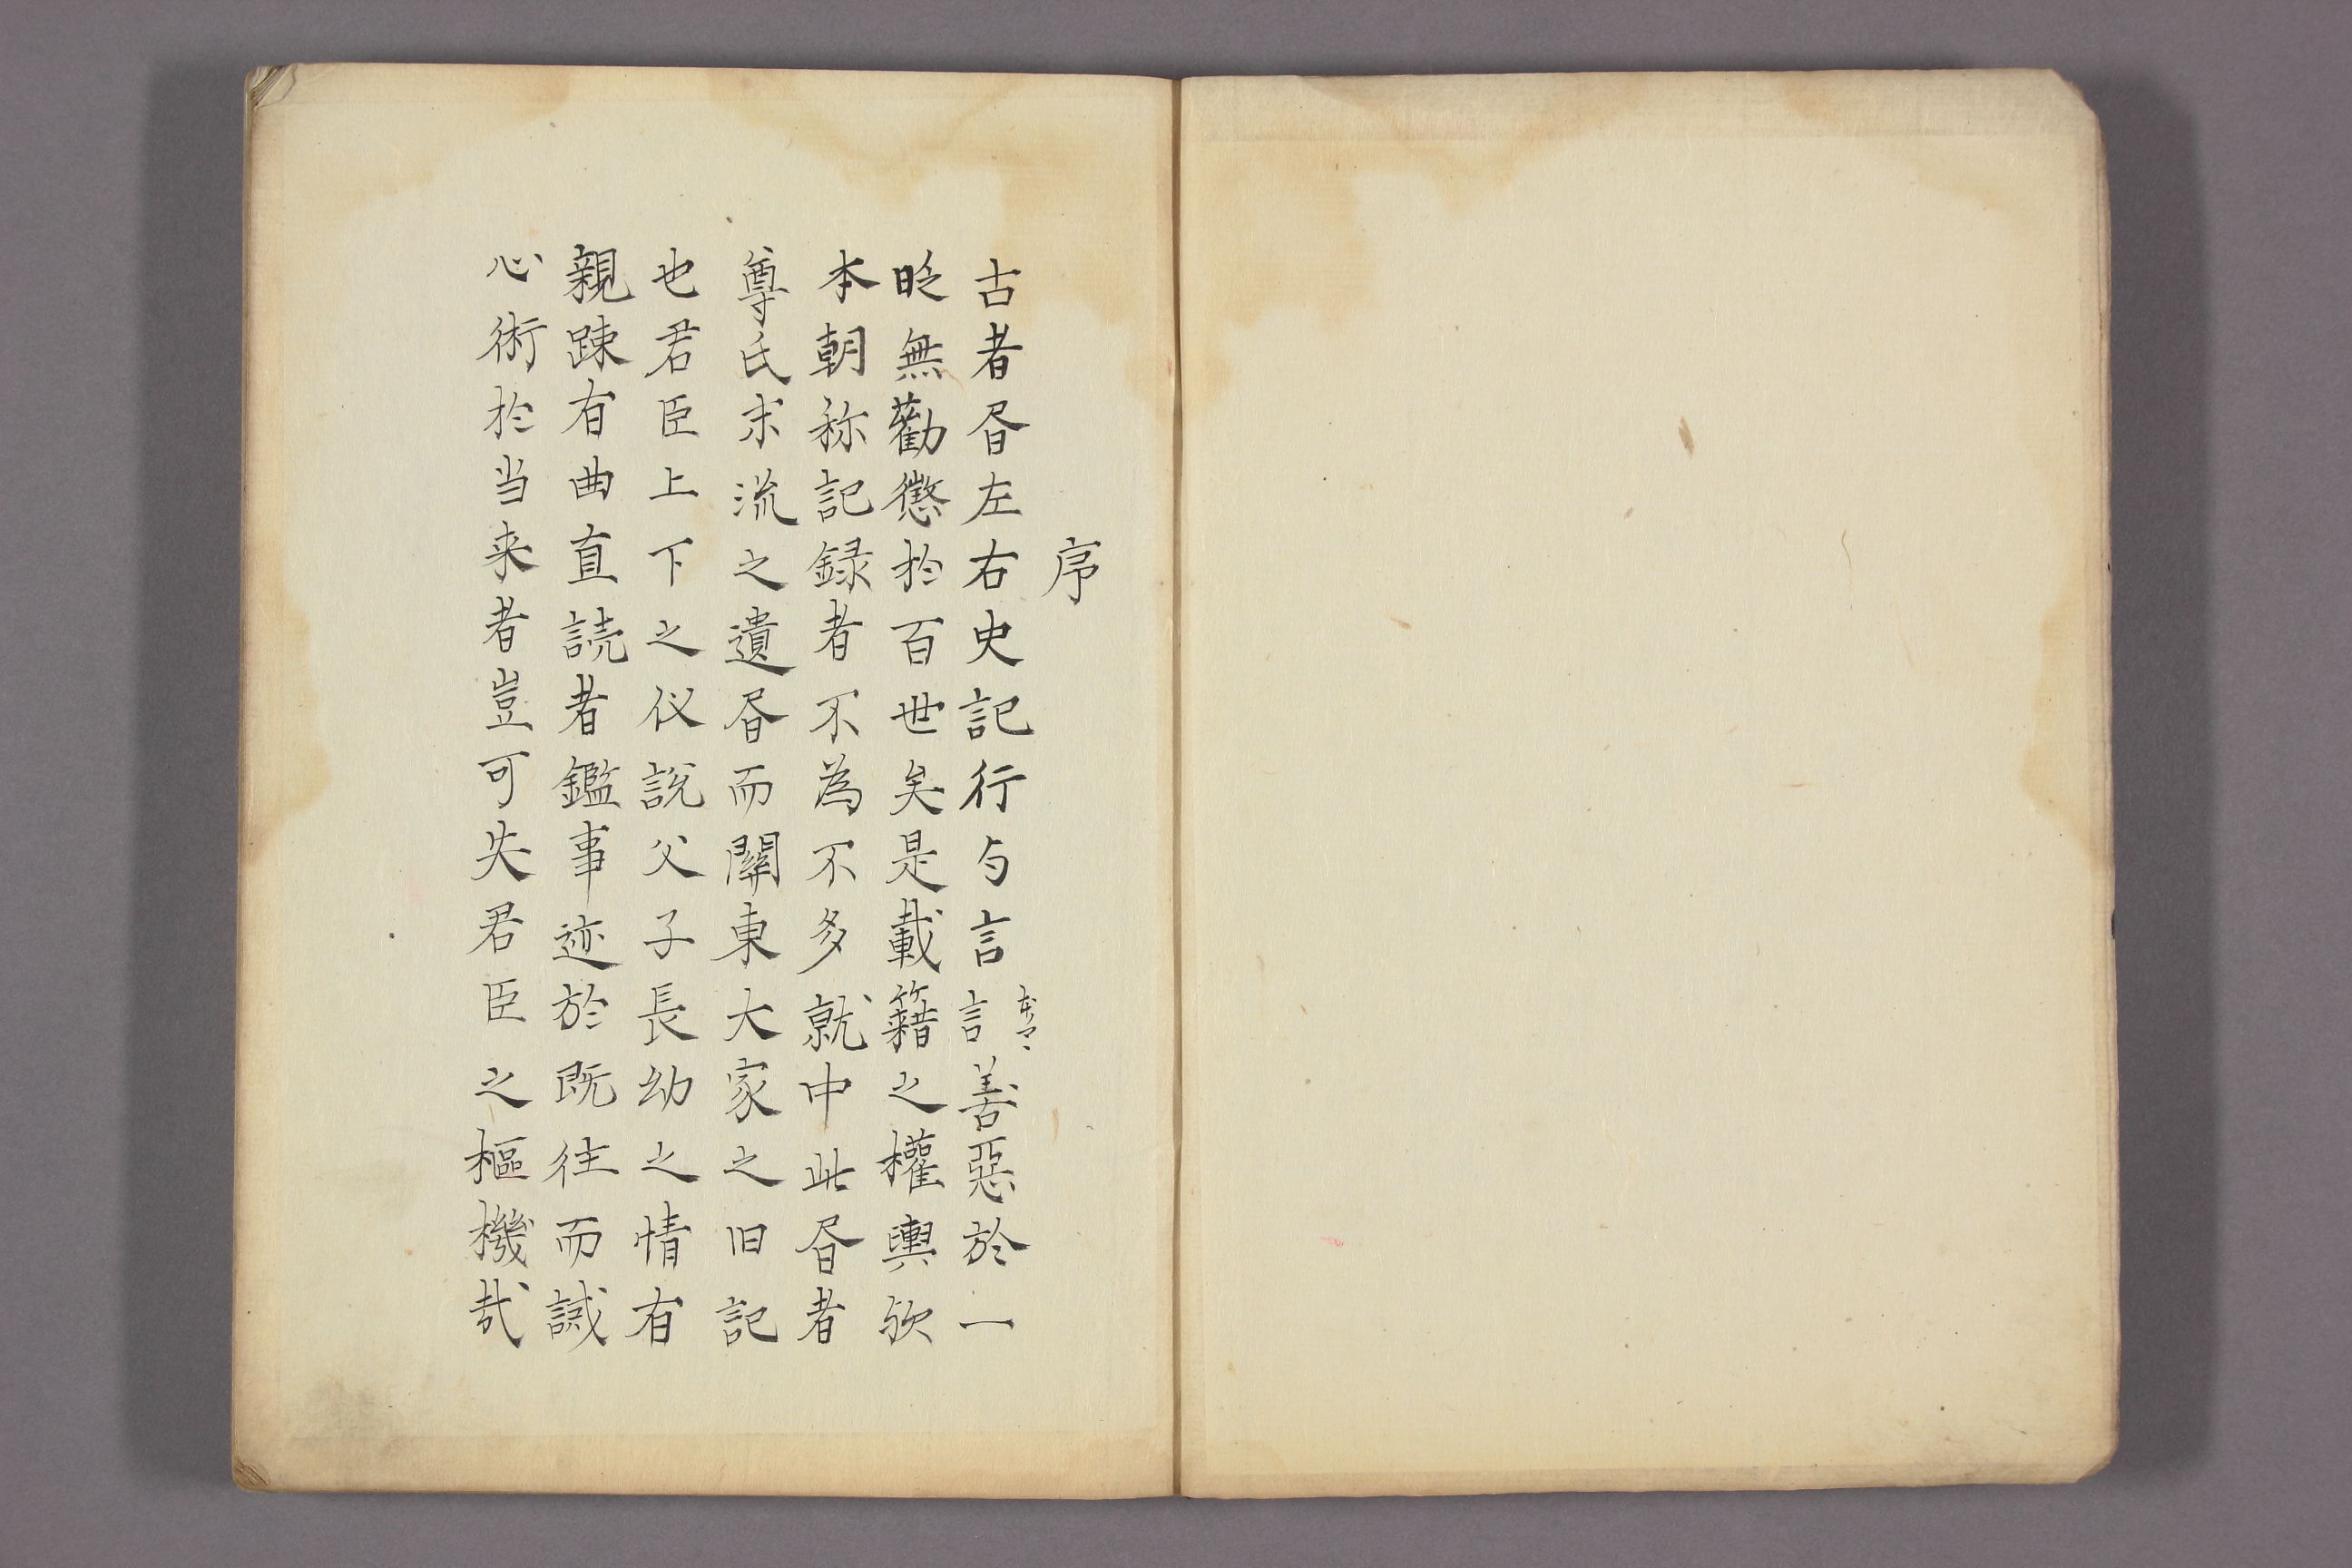 序
古者書左右史記行与言言善惡於一
本ノマヽ
眨無勸懲於百世矣是載籍之權輿欤
本朝称記録者不為不多就中此書者
尊氏末流之遺書而關東大家之旧記
也君臣上下之仪説父子長幼之情有
親踈有曲直読者鑑事迹於既往而誡
心術於当来者豈可失君臣之樞機哉